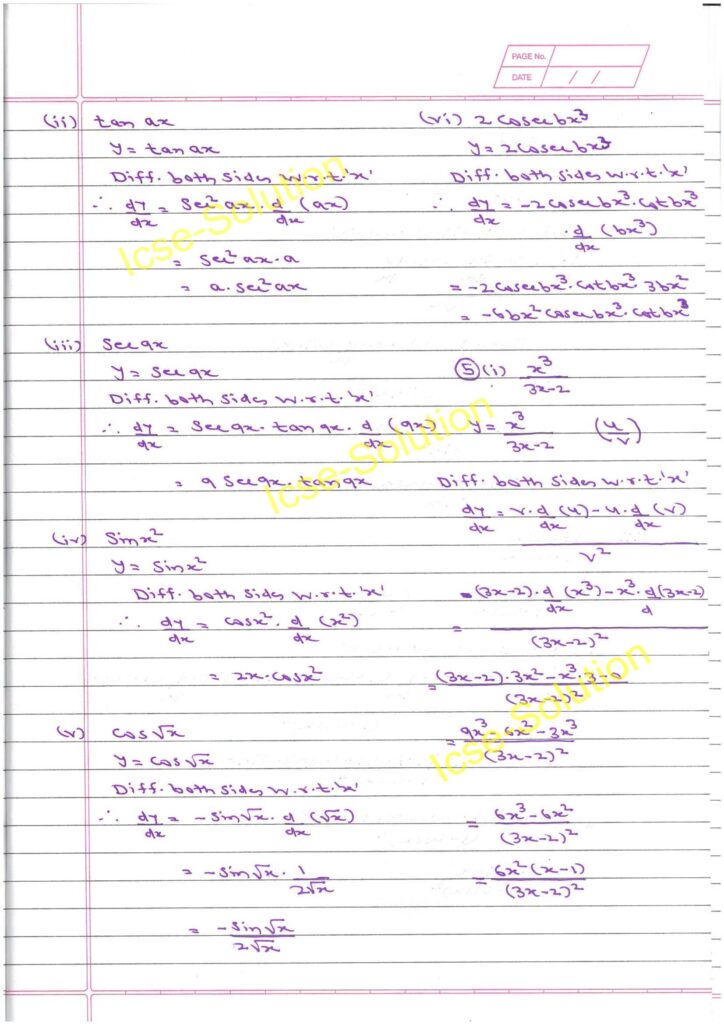 PAGE No.
DATE / /
(ii) tan ax
y = tan ax
Diff. both sides w.r.t. 'x'
∴ dy/dx = sec² ax · d/dx (ax)
= sec² ax · a
= a · sec² ax
(iii) sec 9x
y = sec 9x
Diff. both sides w.r.t. 'x'
∴ dy/dx = sec 9x · tan 9x · d/dx (9x)
= 9 sec 9x · tan 9x
(iv) sin x²
y = sin x²
Diff. both sides w.r.t. 'x'
∴ dy/dx = cos x² · d/dx (x²)
= 2x · cos x²
(v) cos √x
y = cos √x
Diff. both sides w.r.t. 'x'
∴ dy/dx = -sin √x · d/dx (√x)
= -sin √x · 1/2√x
= -sin √x / 2√x
(vi) 2 cosec bx³
y = 2 cosec bx³
Diff. both sides w.r.t. 'x'
∴ dy/dx = -2 cosec bx³ · cot bx³
· d/dx (bx³)
= -2 cosec bx³ · cot bx³ · 3bx²
= -6bx² cosec bx³ · cot bx³
⑤ (i) x³/3x-2
y = x³/3x-2 (u/v)
Diff. both sides w.r.t. 'x'
dy/dx = v · d/dx (u) - u · d/dx (v) / v²
= (3x-2) · d/dx (x³) - x³ · d/d (3x-2) / (3x-2)²
= (3x-2) · 3x² - x³ · 3-0 / (3x-2)²
= 9x³ - 6x² - 3x³ / (3x-2)²
= 6x³ - 6x² / (3x-2)²
= 6x² (x-1) / (3x-2)²
Icse-Solution
Icse-Solution
Icse-Solution